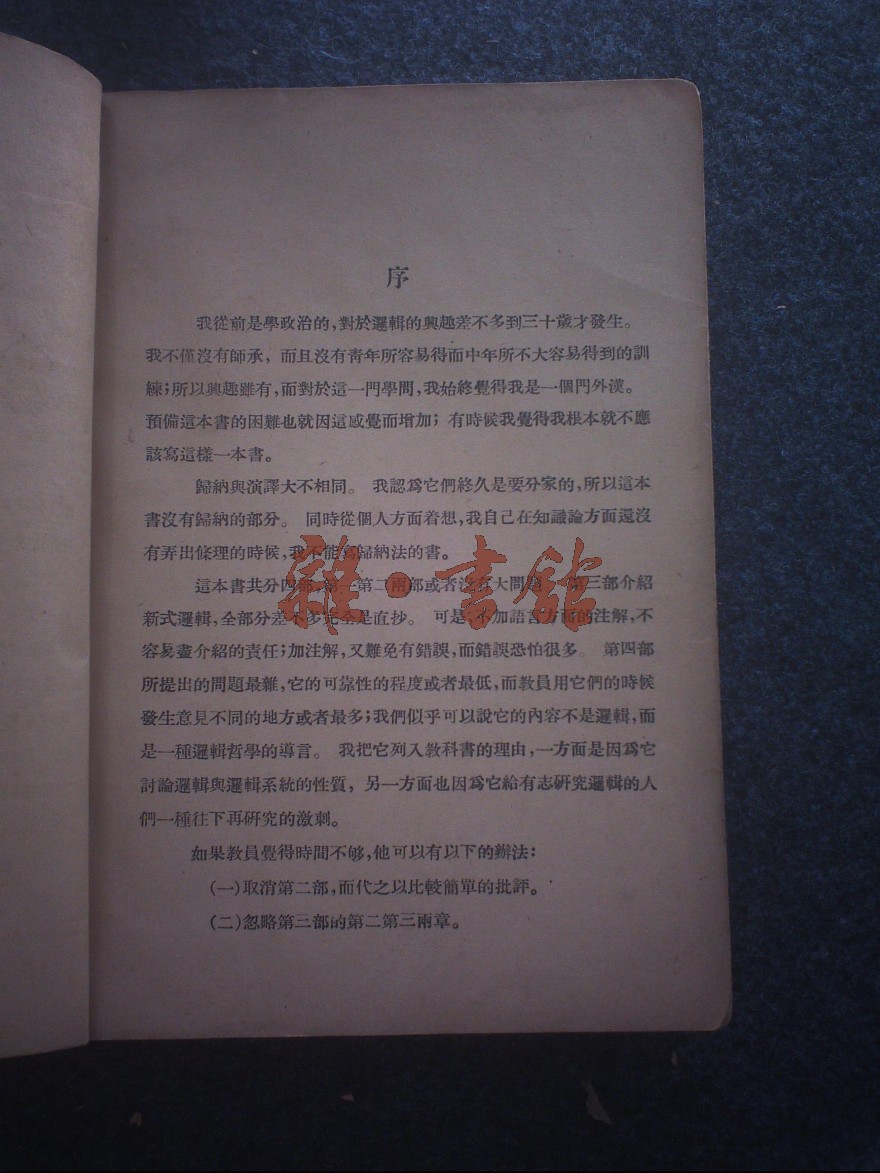 序
我從前是學政治的，對於邏輯的興趣差不多到三十歲才發生。
我不僅沒有師承，而且沒有靑年所容易得而中年所不大容易得到的訓
練；所以興趣雖有，而對於這一門學問，我始終覺得我是一個門外漢。
預備這本書的困難也就因這感覺而增加；有時候我覺得我根本就不應
該寫這樣一本書。
歸納與演譯大不相同。我認爲它們終久是要分家的，所以這本
書沒有歸納的部分。同時從個人方面着想，我自己在知識論方面還沒
有弄出條理的時候，我不能寫歸納法的書。
這本書共分四部，第一第二兩部或者沒有大問題，第三部介紹
新式邏輯，全部分差不多完全是直抄。可是，不加語言方面的注解，不
容易盡介紹的責任；加注解，又難免有錯誤，而錯誤恐怕很多。第四部
所提出的問題最雜，它的可靠性的程度或者最低，而教員用它們的時候
發生意見不同的地方或者最多；我們似乎可以說它的內容不是邏輯，而
是一種邏輯哲學的導言。我把它列入教科書的理由，一方面是因爲它
討論邏輯與邏輯系統的性質，另一方面也因爲它給有志研究邏輯的人
們一種往下再研究的激刺。
如果教員覺得時間不够，他可以有以下的辦法：
（一）取消第二部，而代之以比較簡單的批評。
（二）忽略第三部的第二第三兩章。
雜·書館